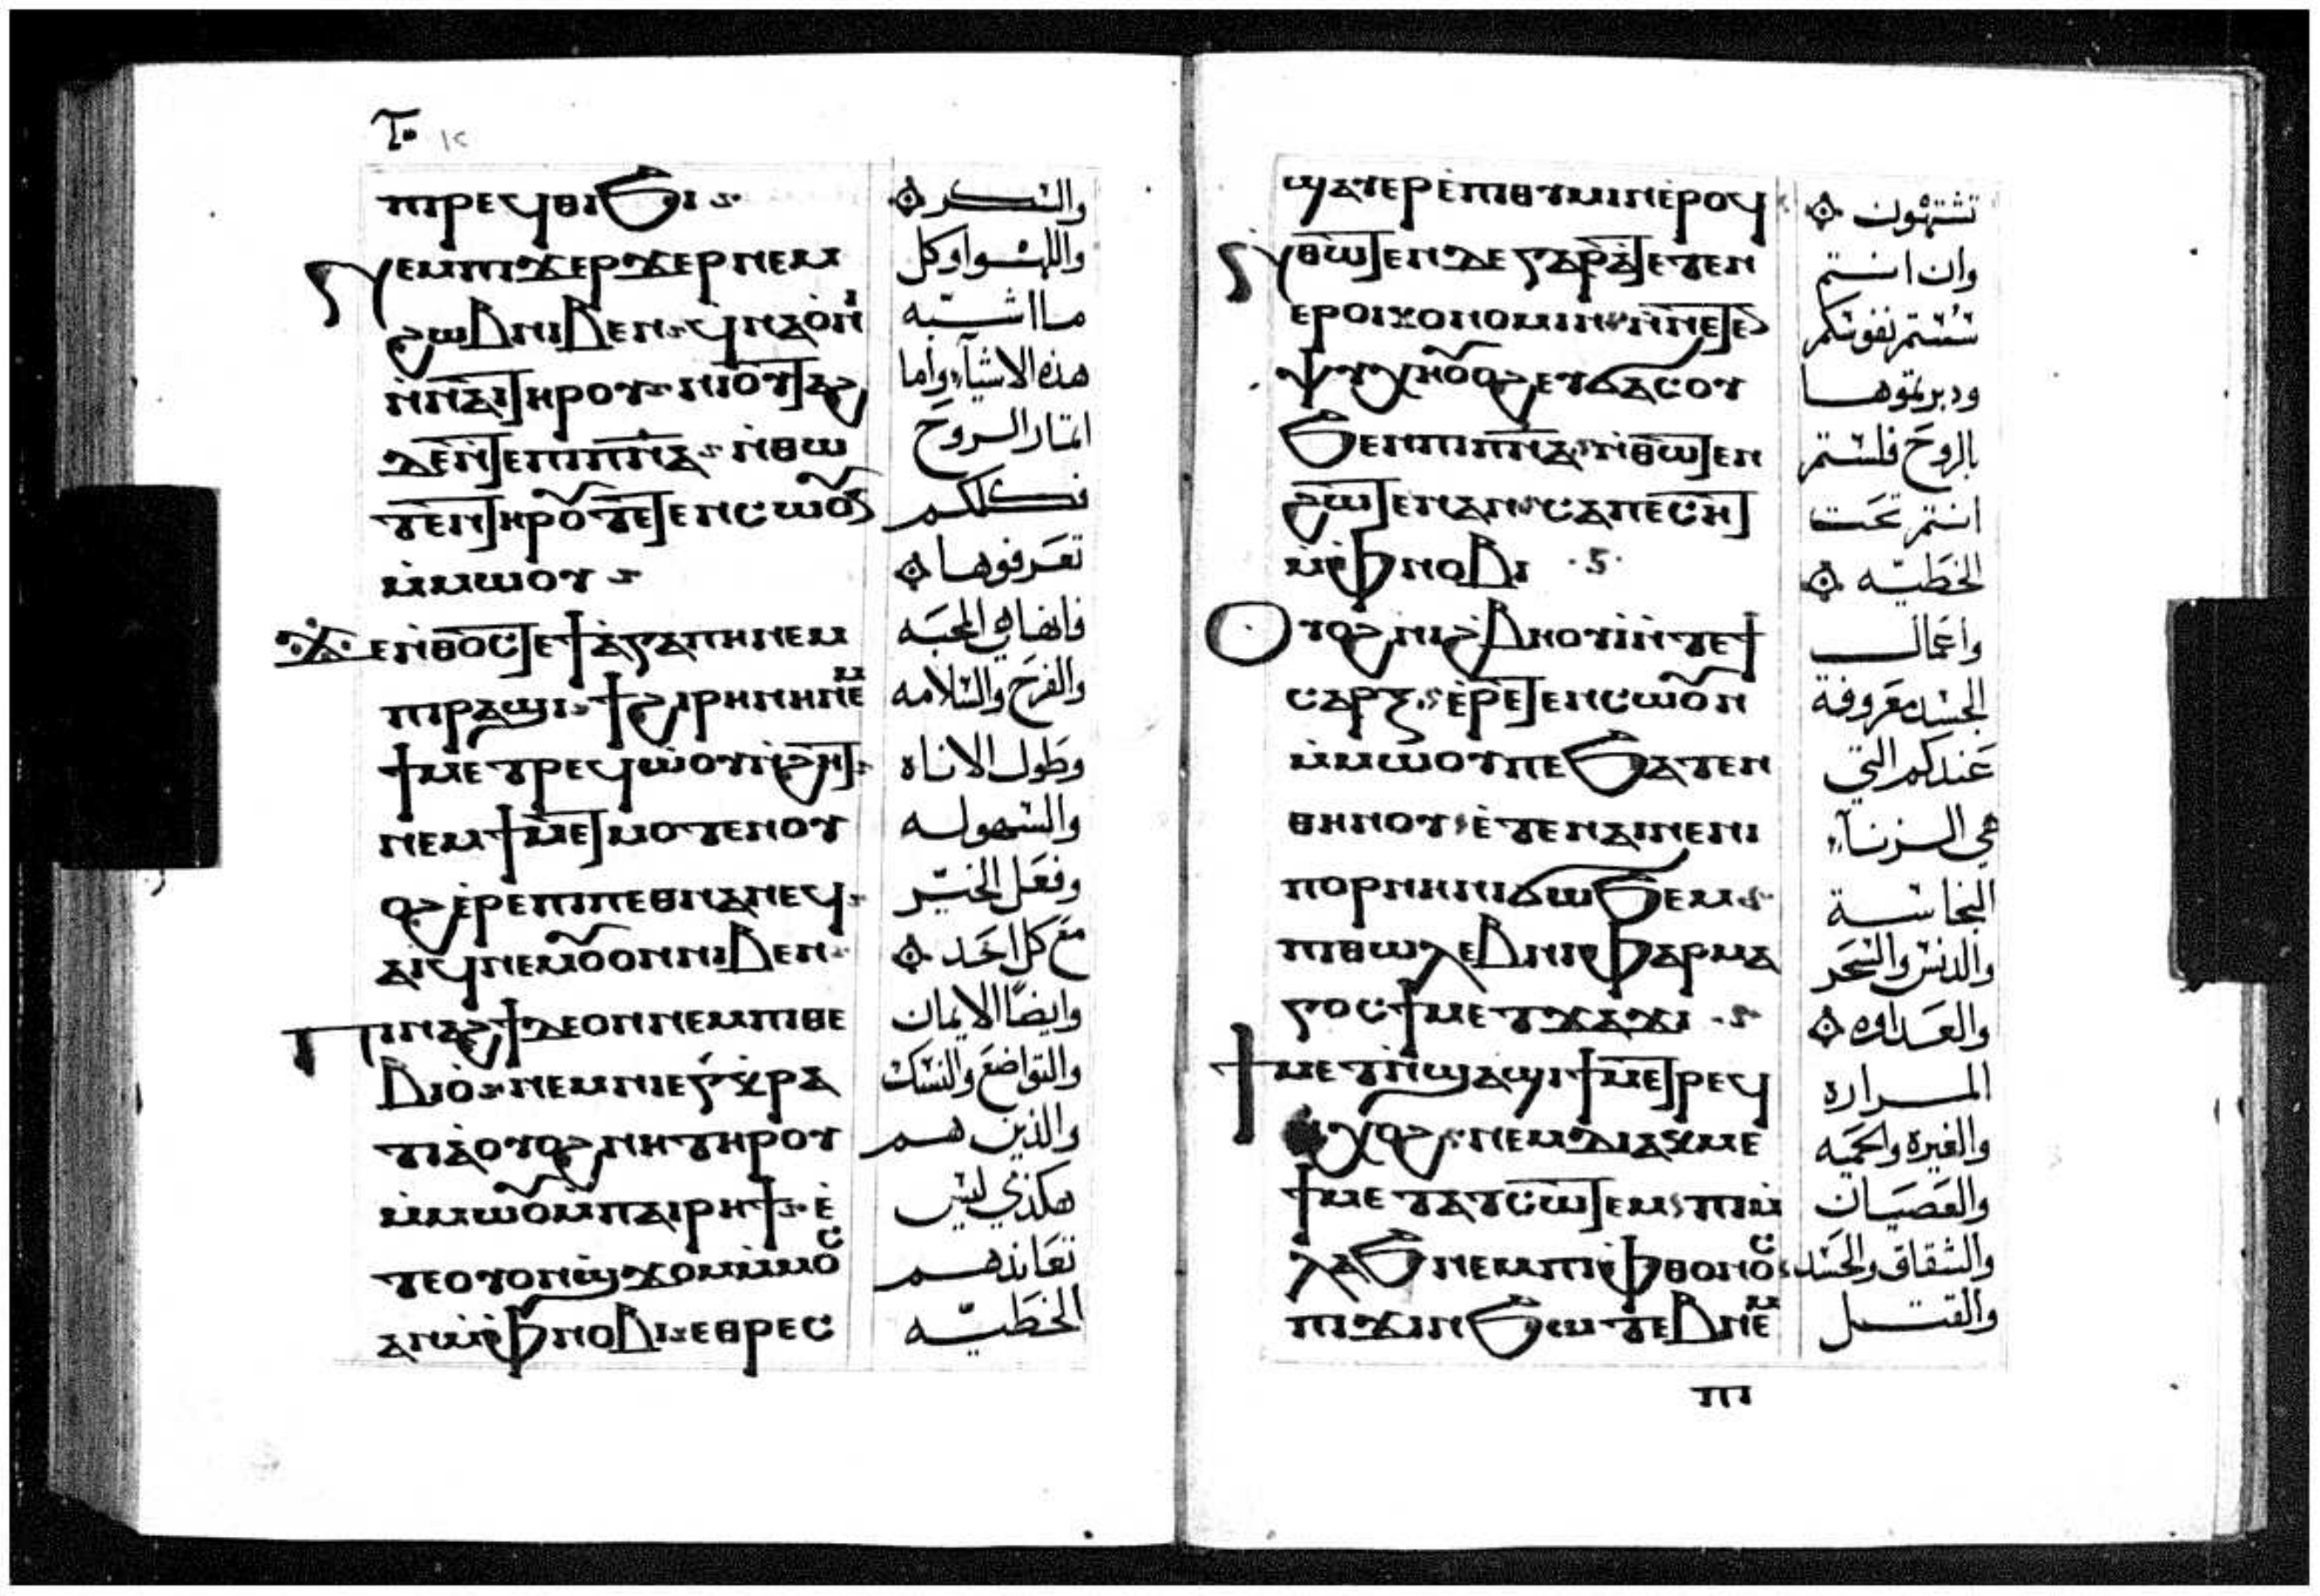 ϣⲁⲧⲉⲣⲉⲡⲓⲑⲩⲙⲓⲛⲉⲣⲟϥ
ⲛⲑⲱⲧⲉⲛⲇⲉ ⲅⲁⲣ ⲁⲧⲉⲧⲉⲛ
ⲉⲣⲟⲓⲕⲟⲛⲟⲙⲓⲛ ⲛⲛⲉⲧⲉⲛ
ⲯⲩⲭⲏ ⲟⲩⲟϩ ⲉⲧϭⲁⲥⲟⲩ
ϧⲉⲛ ⲡⲓⲡⲛⲁ ⲛⲑⲱⲧⲉⲛ
ϩⲱⲧⲉⲛ ⲁⲛ ⲥⲁⲡⲉⲥⲏⲧ
ⲙⲫⲛⲟⲃⲓ
ⲟⲩⲟϩ ⲛⲓϩⲃⲏⲟⲩⲓ ⲛⲧⲉϯ
ⲥⲁⲣⲝ ⲉⲣⲉⲧⲉⲛⲥⲱⲟⲩⲛ
ⲙⲙⲱⲟⲩ ⲡⲉ ϧⲁⲧⲉⲛ
ⲑⲏⲛⲟⲩ ⲉⲧⲉⲛⲁⲓⲛⲉ ⲛⲓ
ⲡⲟⲣⲛⲏ ⲛⲓϭⲱϧⲉⲙ
ⲡⲓⲑⲱⲗⲉⲃ ⲛⲓⲫⲁⲣⲙⲁ
ⲅⲟⲥ ϯⲙⲉⲧϫⲁϫⲓ
ϯⲙⲉⲧⲛϣⲁϣⲓ ϯⲙⲉⲧⲣⲉϥ
ⲭⲟϩ ⲛⲉⲙ ⲇⲓⲁⲕⲙⲉ
ϯⲙⲉⲧⲁⲧⲥⲱⲧⲉⲙ ⲡⲓⲙ
ⲗⲁϧ ⲛⲉⲙ ⲡⲓⲫⲑⲟⲛⲟⲥ
ⲡⲓϫⲓⲛϧⲱⲧⲉⲃ ⲛⲉⲙ
تشتهون
وان انتم
سستم نفوسكم
ودبرتموها
بالروح فلستم
انتم تحت
الخطيه
واعمال
الجسد معروفة
عندكم التي
هي الزناء
النجاسة
والدنس والسحر
والعداوه
المراره
والغيرة والحميه
والعصيان
والشقاق والحسد
والقتل
ⲡⲓ
ⲡⲓⲣⲉϥⲑⲓϧⲓ
ⲛⲉⲙ ⲡⲓϫⲉⲣϫⲉⲣ ⲛⲉⲙ
ϩⲱⲃ ⲛⲓⲃⲉⲛ ϥⲛⲁⲟⲛⲓ
ⲛⲛⲁⲓ ⲧⲏⲣⲟⲩ ⲛⲓⲟⲩⲧⲁϩ
ⲇⲉ ⲛⲧⲉⲡⲓⲡⲛⲁ ⲛⲑⲱ
ⲧⲉⲛ ⲧⲏⲣⲟⲩ ⲧⲉⲧⲉⲛⲥⲱⲟⲩⲛ
ⲙⲙⲱⲟⲩ
ϫⲉ ⲛⲑⲟⲥ ⲧⲉ ϯⲁⲅⲁⲡⲏ ⲛⲉⲙ
ⲡⲓⲣⲁϣⲓ ϯϩⲓⲣⲏⲛⲏ ⲛⲉⲙ
ϯⲙⲉⲧⲣⲉϥⲱⲟⲩⲛϩⲏⲧ
ⲛⲉⲙ ϯⲙⲉⲧⲙⲟⲧⲉⲛ ⲟⲩ
ⲟϩ ⲉⲣⲉⲡⲓⲡⲉⲑⲛⲁⲛⲉϥ
ⲁⲓϥ ⲛⲉⲙ ⲟⲩⲟⲛ ⲛⲓⲃⲉⲛ
ⲡⲓⲛⲁϩϯ ⲇⲉ ⲟⲛ ⲛⲉⲙ ⲡⲓⲑⲉ
ⲃⲓⲟ ⲛⲉⲙ ⲛⲓⲉⲅⲕⲣⲁ
ⲧⲓⲁ ⲟⲩⲟϩ ⲛⲏ ⲧⲏⲣⲟⲩ
ⲙⲙⲱⲟⲩ ⲙⲡⲁⲓⲣⲏϯ ⲉ
ⲧⲉ ⲟⲩⲟⲛϣϫⲟⲙ ⲙⲙⲟⲥ
ⲁⲛ ⲙⲫⲛⲟⲃⲓ ⲉⲑⲣⲉⲥ
والسكر
واللهو او كل
ما اشبه
هذه الاشياء واما
اثمار الروح
فكلكم
تعرفوها
فانها هي المحبه
والفرح والسلامه
وطول الاناه
والسهوله
وفعل الخير
مع كل احد
وايضًا الايمان
والتواضع والنسك
والذين هم
هكذي ليس
تعاندهم
الخطيه